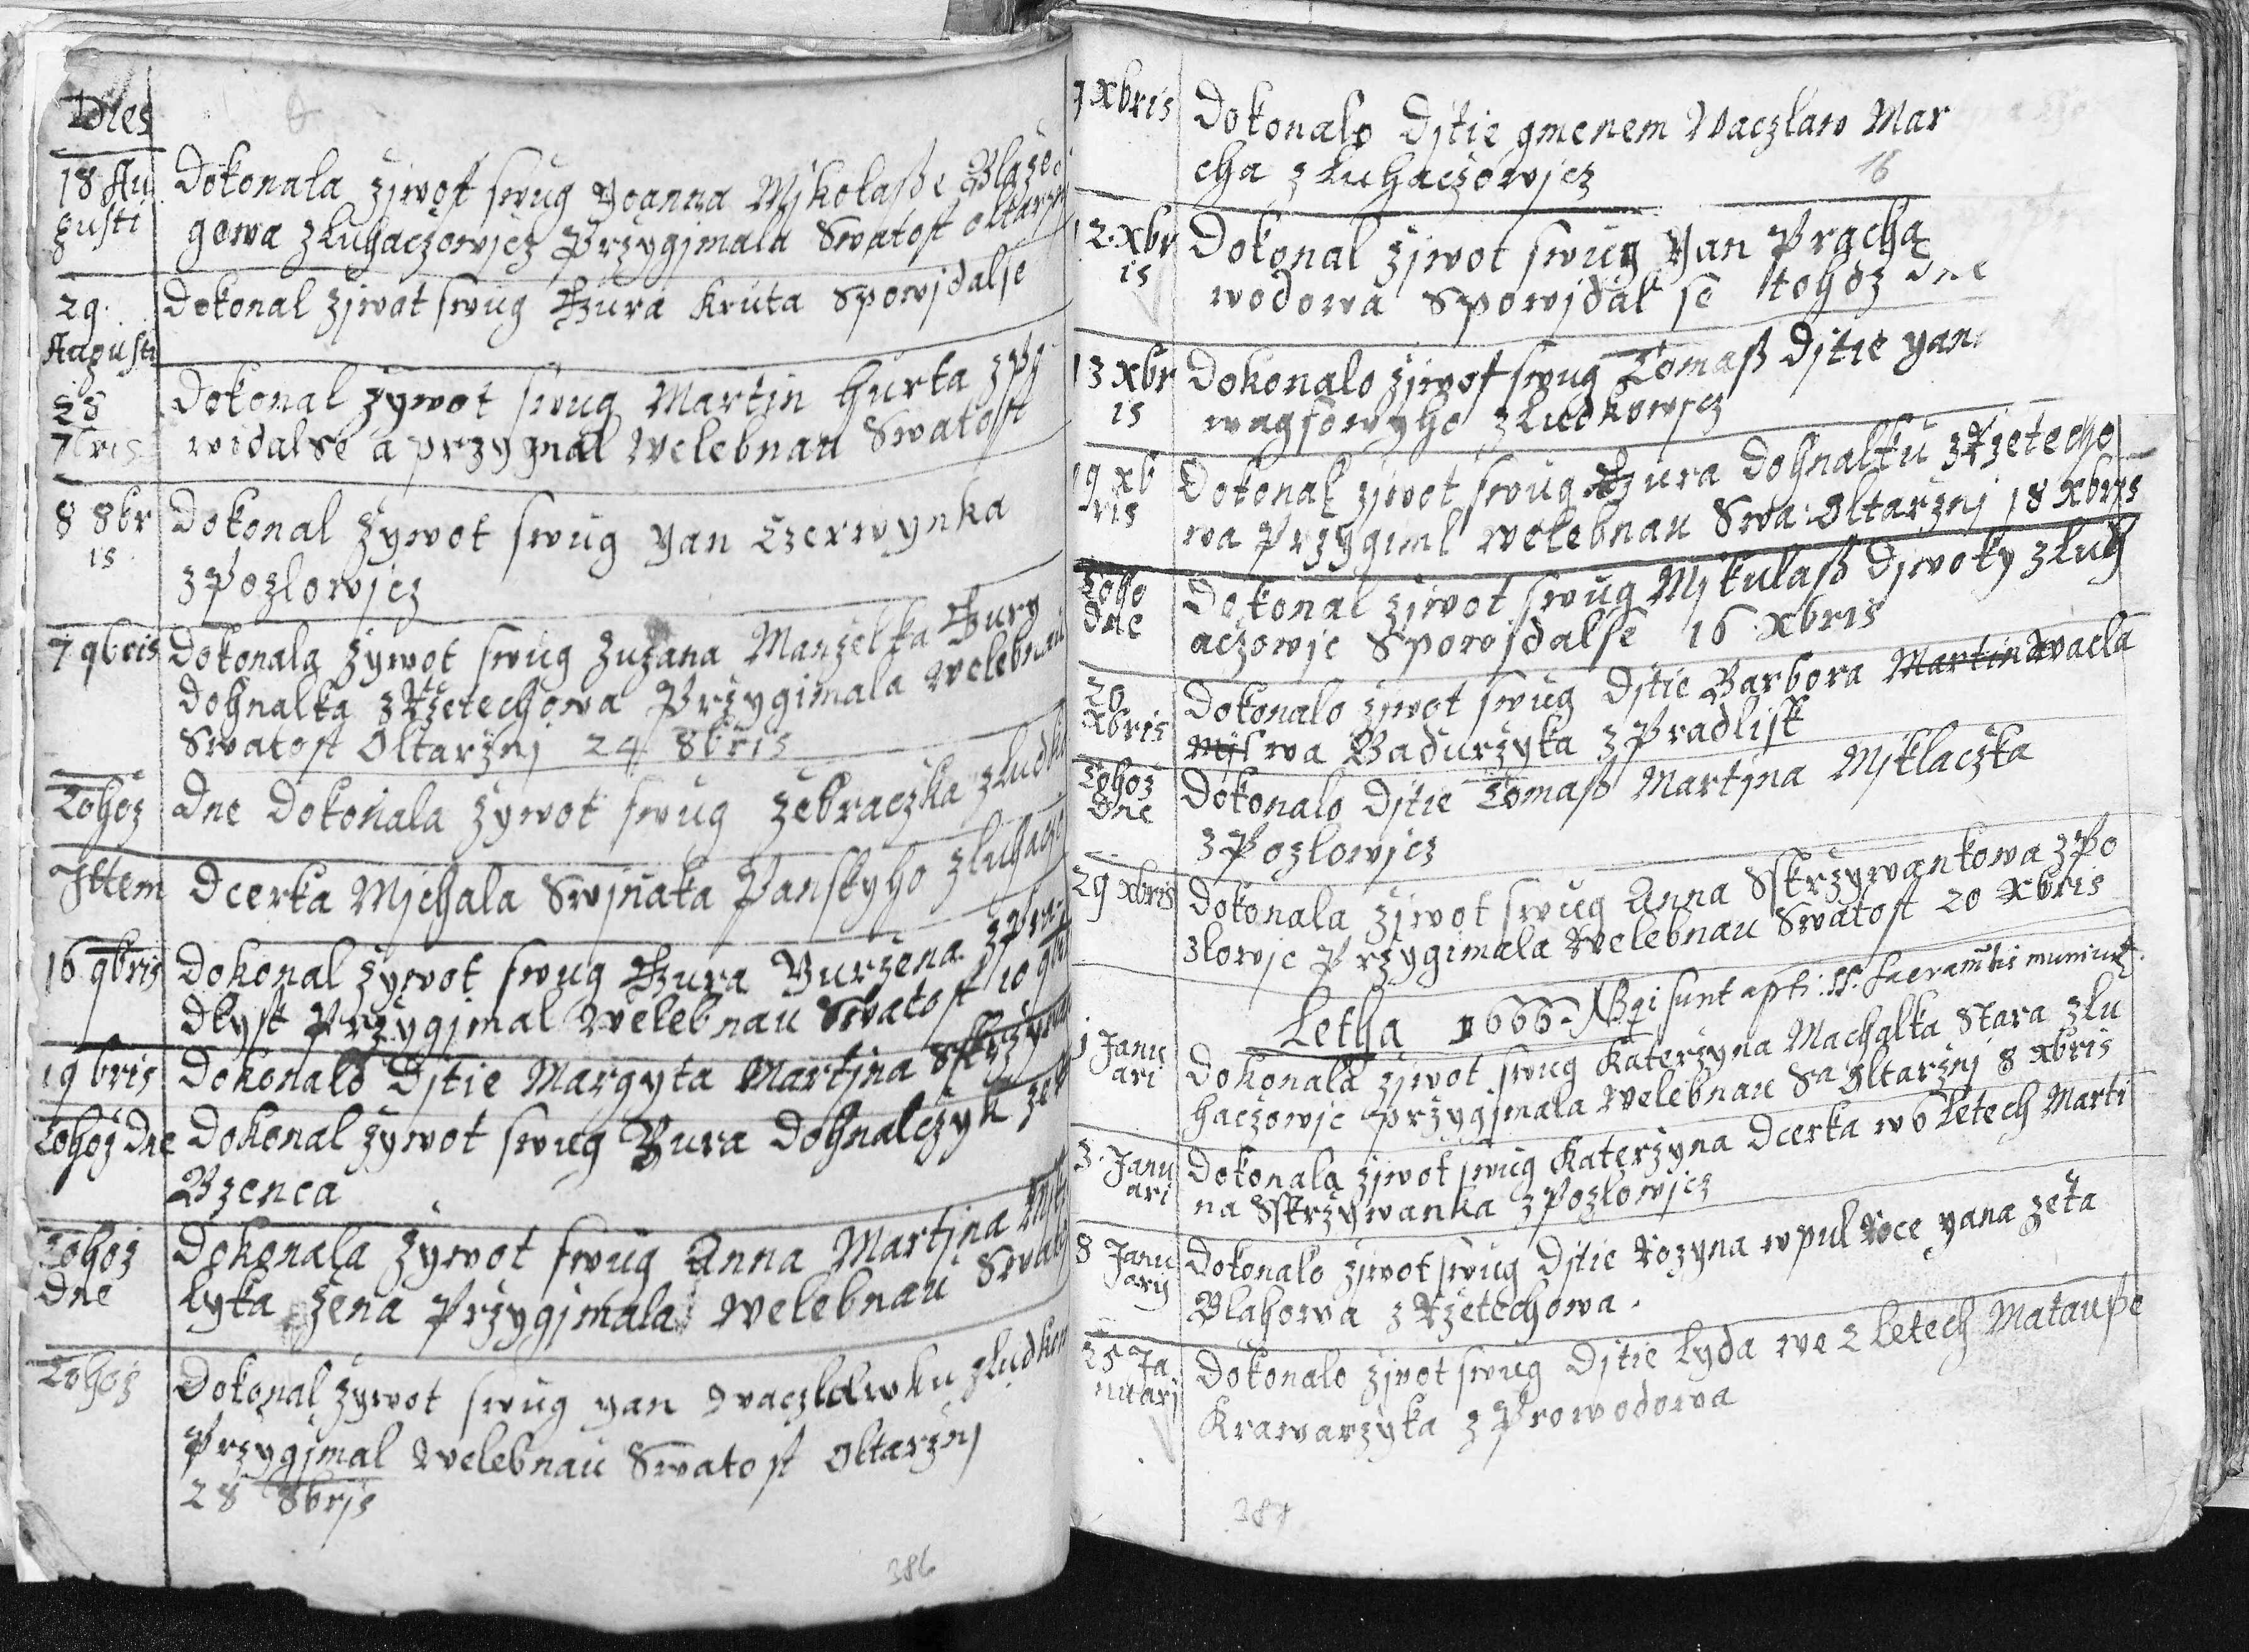 Dies
18 Au Dokonala zjwot swug Yoanna Mjkolasse Blazeo
gusti gowa z Luhaczowjcz Przygjmala Swatost oltarzn
29. Dokonal zjwot swug Gura Kruta Spowjdalse
Augusti
28 Dokonal zywot swug Martin Hurta z Py
7bris widalse a przygmal Welebnau Swatost
8 8br Dokonal zywot swug Yan Czerwynka
is z Pozlowjcz
7 9bris Dokonala zywot swug Zuzana Manzelka Gury
Dohnalka z Rzetechowa Przygimala Welebnau
Swatost Oltarznj 24 8bris
Tohoz dne Dokonala zywot swug zebraczka z Ludko
Ittem Dcerka Mjchala Swjnaka Panskyho z Luhacz
16 9bris Dokonal zywot swug Gura Yurzena z Pra
dlyst Przygjmal Welebnau Swatost 10 9bris
19 bris Dokonalo Djtie Margyta Martjna Sskrzywa
Tohoz dne Dokonal zywot swug Yura Dohnalczyk ze
Bzenca
Tohoz Dokonala zywot swug Anna Martjna
dne lyka zena Przygjmala Welebnau Swato
Tohoz Dokonal zywot swug Yan Waczlawku z Ludkow
Przygjmal Welebnau Swatost Oltarznj
28 8brjs
386
7 Xbris Dokonalo Djtie gmenem Waczlaw Mar
cha z Luhaczowjcz
18
12. Xbr Dokonal zjwot swug Yan Pracha
is wodowa Spowjdal se tohoz dne
13 Xbr Dokonalo zjwot swug Tomass Djtie Yana
is wagsowyho z Ludkowjcz
19 Xb Dokonal zjwot swug Gura Dohnalku z Rzetecho
ris wa Przygiml Welebnau Swa: Oltarznj 18 Xbris
Toho Dokonal zjwot swug Mjkulass Djwoky z Luh
dne aczowjc Spowjdalse 16 Xbris
20 Dokonalo zjwot swug Djtie Barbora Martina Wacla
Xbris wa Badurzyka z Pradlisk
Tohoz Dokonalo Djtie Tomass Martjna Mjklaczka
dne z Pozlowjcz
29 Xbris Dokonala zjwot swug Anna Sskrzywankowa z Po
zlowjc Przygimala Welebnau Swatost 20 Xbris
Letha 1666 NB qi sunt apti SS. Sacramtis muniunt.
1 Janu Dokonala zjwot swug Katerzyna Machalka Stara z Lu
ari haczowjc przygjmala Welebnau Sa Oltarznj 8 Xbris
3. Janu Dokonala zjwot swug Katerzyna Dcerka w 6 Letech Marti
ari na Sskrzywanka z Pozlowjcz
8 Janu Dokonalo zjwot swug Djtie Rozyna w pul Roce Yana zeta
arij Blahowa z Rzetechowa.
25 Ja Dokonalo zjwot swug Djtie Lyda we 2 Letech Matausse
nuarj Krawarzyka z Prowodowa
387